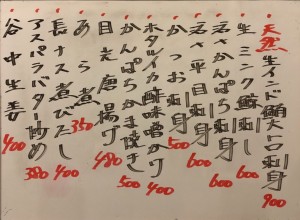 天然 生インド鮪大トロ刺身 900
生ミンク鯨刺身 600
活〆かんぱち刺身 600
活〆平目刺身 600
かつお刺身 500
ホタルイカ酢味噌かけ 400
かんぱちかま焼き 500
目光唐揚げ 480
あら煮 350
長ナス煮びたし 400
アスパラバター炒め 380
谷中生姜 400